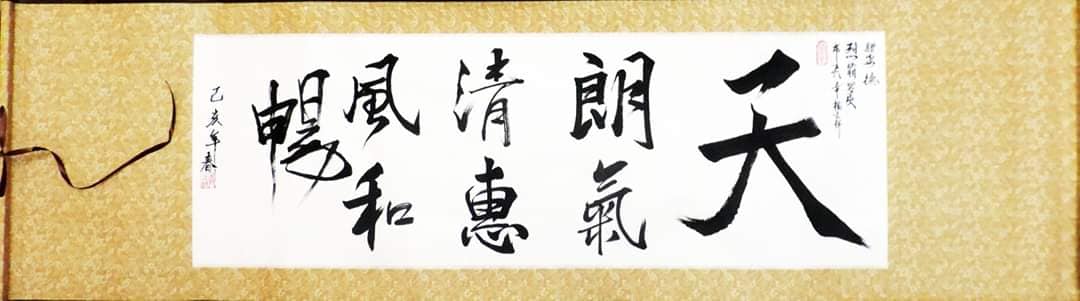 天
朗氣
清惠
風和
暢
己亥年春